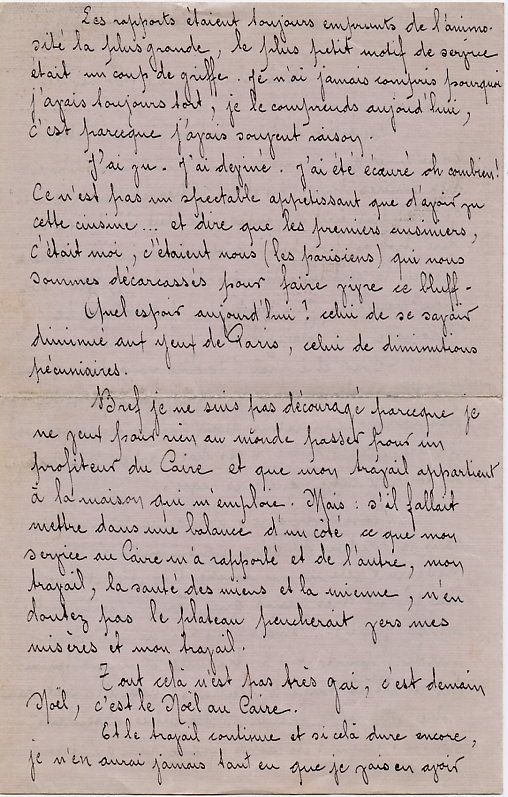 Les rapports étaient toujours emprunts de l'animo-
sité la plus grande, le plus petit motif de service
était un coup de griffe. Je n'ai jamais compris pourquoi
j'avais toujours tort, je le comprends aujourd'hui,
c'est parceque j'avais souvent raison.
J'ai vu. J'ai deviné. J'ai été écœuré oh combien!
Ce n'est pas un spectable appétissant que d'avoir vu
cette cuisine... et dire que les premiers cuisiniers,
c'était moi, c'étaient nous (les parisiens) qui nous
sommes décarcassés pour faire vivre ce bluff -
Quel espoir aujourd'hui? celui de se savoir
diminué aux yeux de Paris, celui de diminutions
pécuniaires.
Bref je ne suis pas découragé parceque je
ne veux pour rien au monde passer pour un
profiteur du Caire et que mon travail appartient
à la maison qui m'emploie. Mais : s'il fallait
mettre dans une balance d'un côté ce que mon
service au Caire m'a rapporté et de l'autre, mon
travail, la santé des miens et la mienne, n'en
doutez pas le plateau pencherait vers mes
misères et mon travail.
Tout celà n'est pas très gai, c'est demain
Noël, c'est le Noël au Caire.
Et le travail continue et si celà dure encore,
je n'en aurai jamais tant eu que je vais en avoir